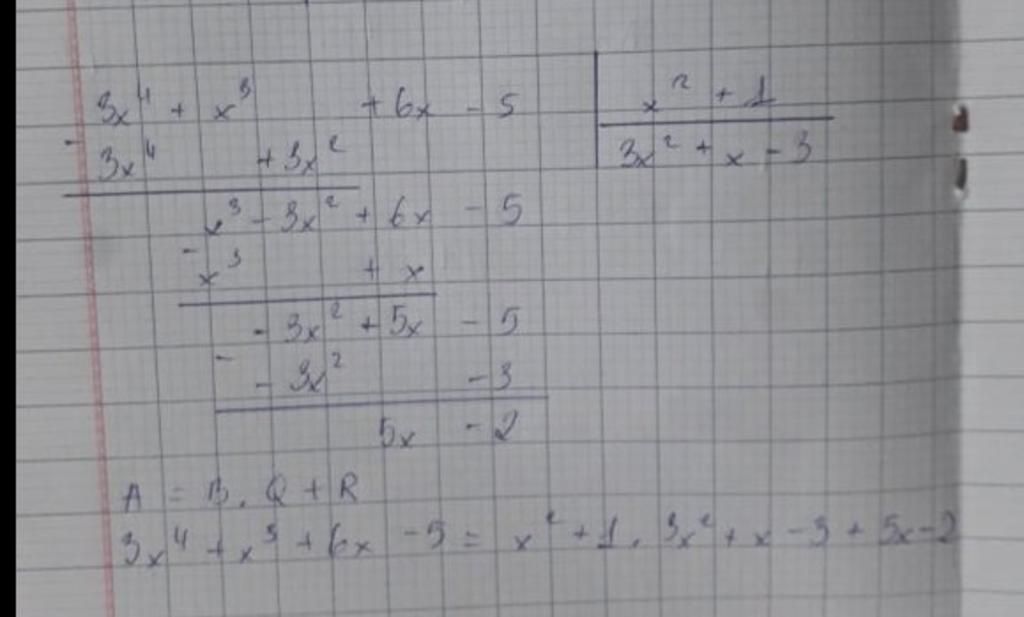 3x⁴ + x³ + 6x - 5 | x² + 1
- 3x⁴ + 3x² | 3x² + x - 3
x³ - 3x² + 6x - 5
- x³ + x
- 3x² + 5x - 5
- - 3x² - 3
5x - 2
A = B . Q + R
3x⁴ + x³ + 6x - 5 = x² + 1 . 3x² + x - 3 + 5x - 2